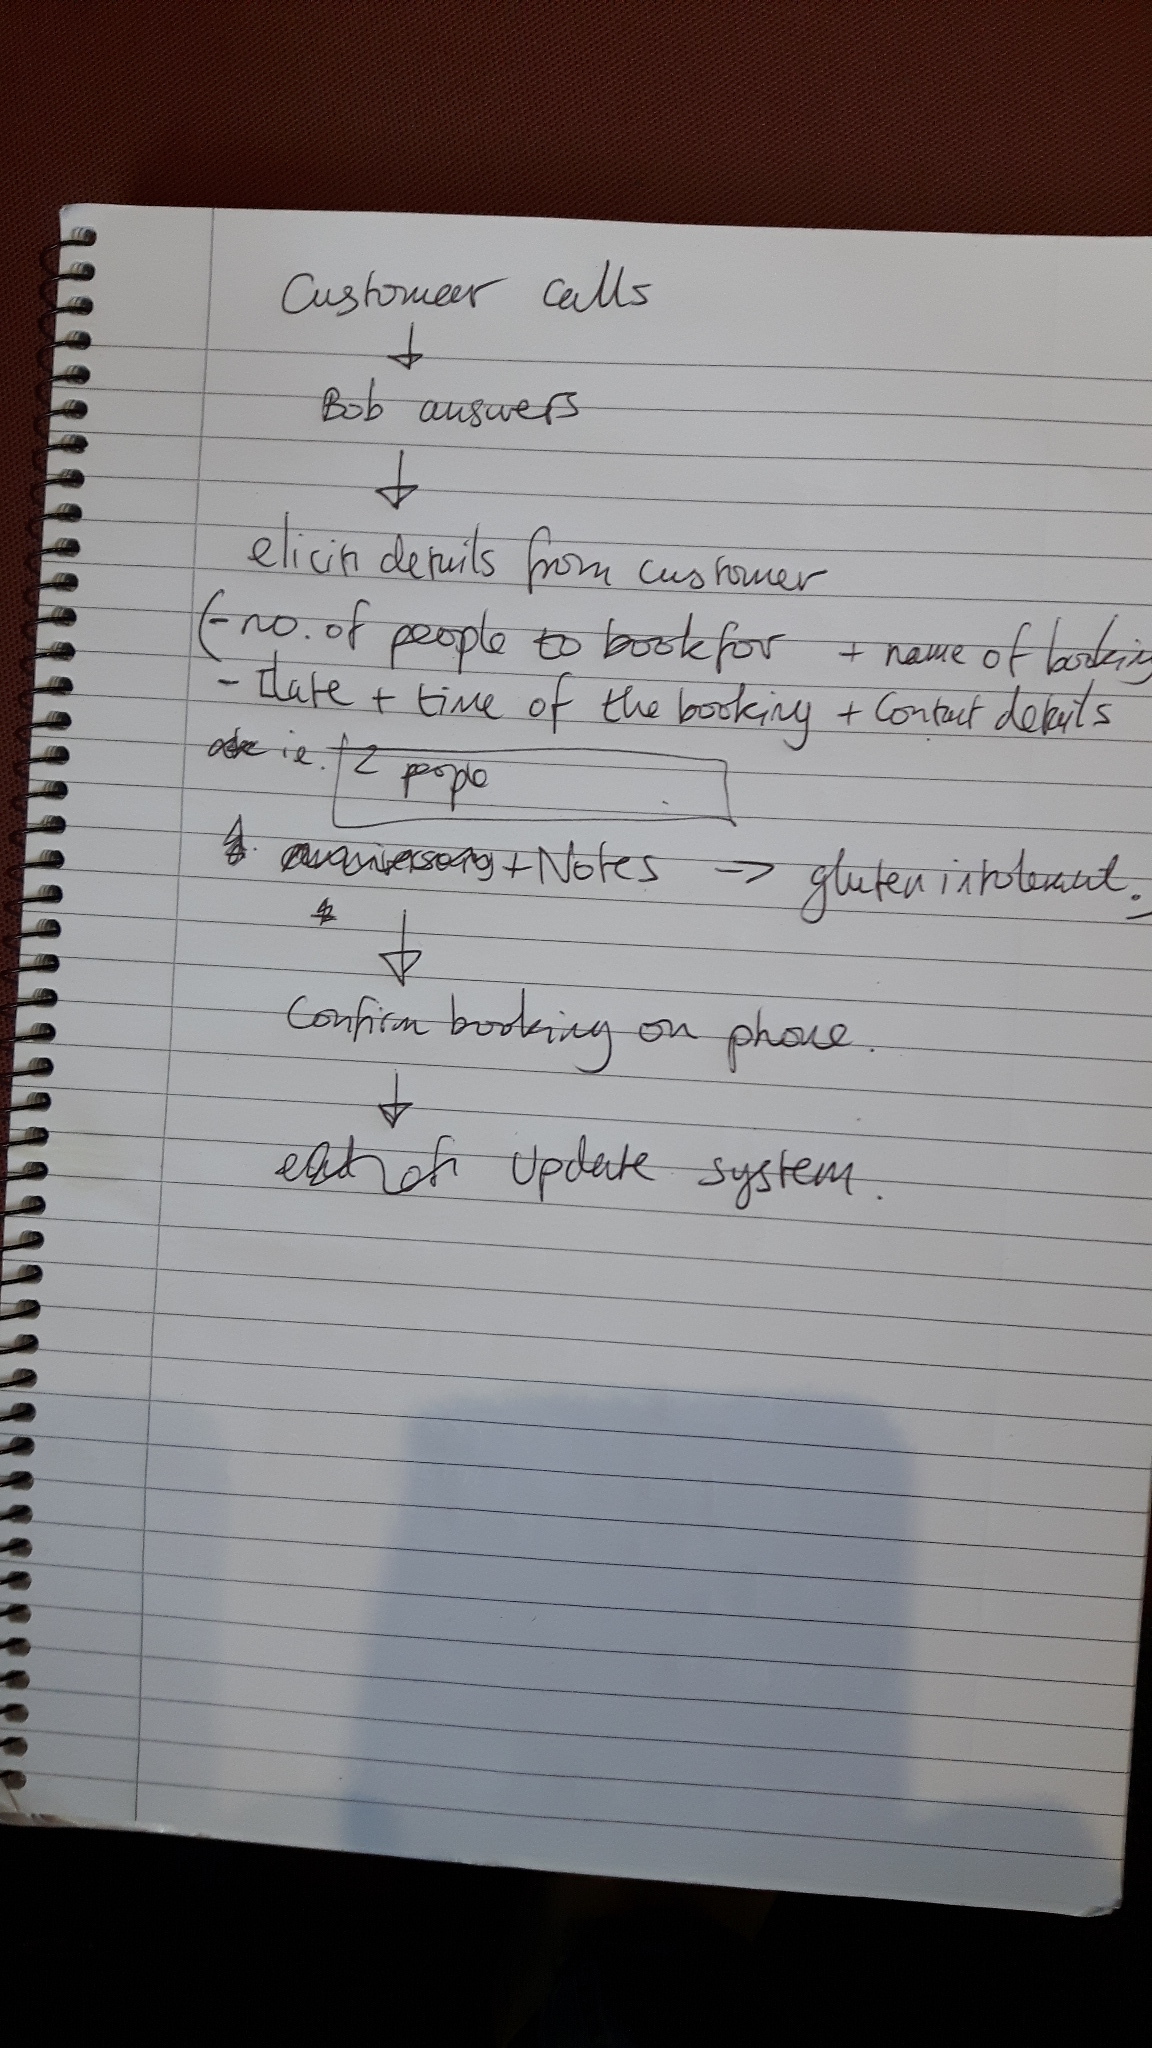 Customeer calls
Bob answers
elicit details from customer
(- no. of people to book for + name of booking
- Date + time of the booking + Contact details
ie. 2 people
anniversary + Notes -> gluten intolerant.
Confirm booking on phone.
update system.